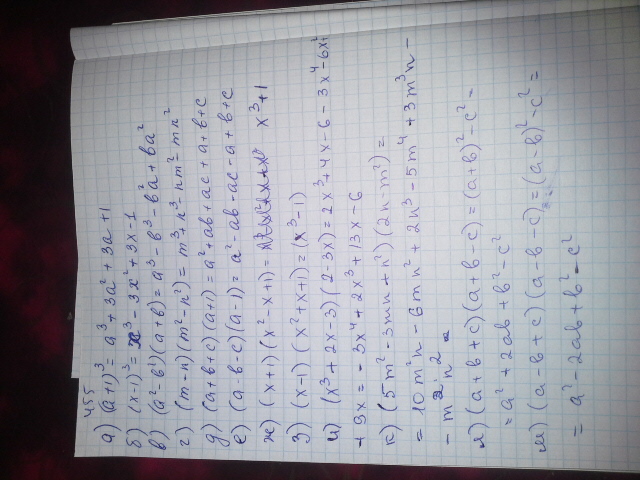 455
а) (a+1)³ = a³ + 3a² + 3a + 1
б) (x-1)³ = x³ - 3x² + 3x - 1
в) (a²-b²)(a+b) = a³ - b³ - b²a + ba²
г) (m-n)(m²-n²) = m³ + n³ - nm² - mn²
д) (a+b+c)(a+1) = a² + ab + ac + a + b + c
е) (a-b-c)(a-1) = a² - ab - ac - a + b + c
ж) (x+1)(x²-x+1) = x³+1
з) (x-1)(x²+x+1) = (x³-1)
и) (x³+2x-3)(2-3x) = 2x³ + 4x - 6 - 3x⁴ - 6x² +
+ 9x = -3x⁴ + 2x³ + 13x - 6
к) (5m² - 3mn + n²)(2n - m²) =
= 10m²n - 6mn² + 2n³ - 5m⁴ + 3m³n -
- m²n² =
л) (a+b+c)(a+b-c) = (a+b)² - c² =
= a² + 2ab + b² - c²
м) (a-b+c)(a-b-c) = (a-b)² - c² =
= a² - 2ab + b² - c²